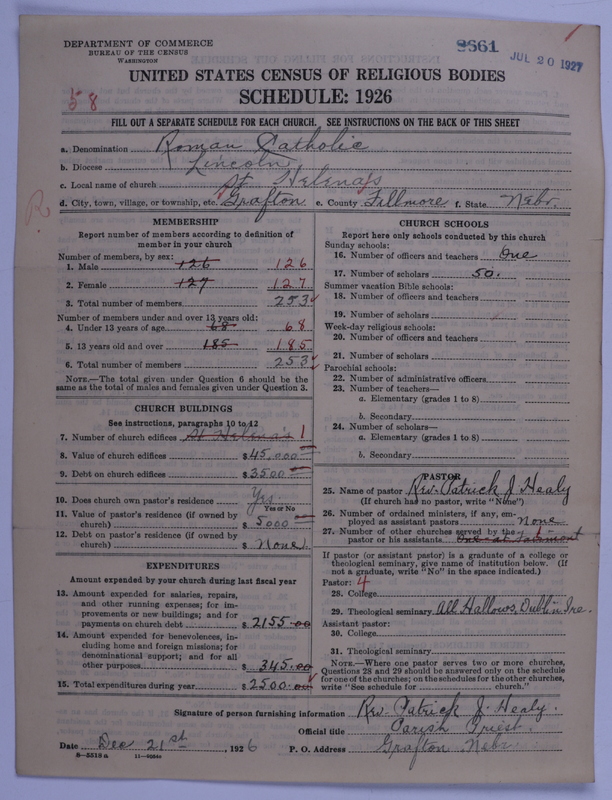 DEPARTMENT OF COMMERCE
BUREAU OF THE CENSUS
WASHINGTON
2661
JUL 20 1927
UNITED STATES CENSUS OF RELIGIOUS BODIES
SCHEDULE: 1926
58
FILL OUT A SEPARATE SCHEDULE FOR EACH CHURCH. SEE INSTRUCTIONS ON THE BACK OF THIS SHEET
a. Denomination Roman Catholic
b. Diocese Lincoln
c. Local name of church St Helena's
d. City, town, village, or township, etc. Grafton e. County Fillmore f. State Nebr.
R
MEMBERSHIP
Report number of members according to definition of
member in your church
Number of members, by sex:
1. Male 126 126
2. Female 127 127
3. Total number of members 253
Number of members under and over 13 years old:
4. Under 13 years of age 68 68
5. 13 years old and over 185 185
6. Total number of members 253
NOTE.—The total given under Question 6 should be the
same as the total of males and females given under Question 3.
CHURCH BUILDINGS
See instructions, paragraphs 10 to 12
7. Number of church edifices St Helena's 1
8. Value of church edifices $ 45,000
9. Debt on church edifices $ 3500
10. Does church own pastor's residence Yes
Yes or No
11. Value of pastor's residence (if owned by
church) $ 5000
12. Debt on pastor's residence (if owned by
church) $ None
EXPENDITURES
Amount expended by your church during last fiscal year
13. Amount expended for salaries, repairs,
and other running expenses; for im-
provements or new buildings; and for
payments on church debt $ 2155.00
14. Amount expended for benevolences, in-
cluding home and foreign missions; for
denominational support; and for all
other purposes $ 345.00
15. Total expenditures during year $ 2500.00
CHURCH SCHOOLS
Report here only schools conducted by this church
Sunday schools:
16. Number of officers and teachers One
17. Number of scholars 50.
Summer vacation Bible schools:
18. Number of officers and teachers
19. Number of scholars
Week-day religious schools:
20. Number of officers and teachers
21. Number of scholars
Parochial schools:
22. Number of administrative officers
23. Number of teachers—
a. Elementary (grades 1 to 8)
b. Secondary
24. Number of scholars—
a. Elementary (grades 1 to 8)
b. Secondary
PASTOR
25. Name of pastor Rev. Patrick J Healy
(If church had no pastor, write "None")
26. Number of ordained ministers, if any, em-
ployed as assistant pastors None
27. Number of other churches served by the 1
pastor or his assistants One at
If pastor (or assistant pastor) is a graduate of a college or
theological seminary, give name of institution below. (If
not a graduate, write "No" in the space indicated.)
Pastor: 4
28. College
29. Theological seminary All Hallows, Dublin Ire.
Assistant pastor:
30. College
31. Theological seminary
NOTE.—Where one pastor serves two or more churches,
Questions 28 and 29 should be answered only on the schedule
for one of the churches; on the schedules for the other churches,
write "See schedule for church."
Signature of person furnishing information Rev. Patrick J. Healy.
Official title Parish Priest
Date Dec 21st, 1926 P. O. Address Grafton Nebr.
8-5518a 11-9064c